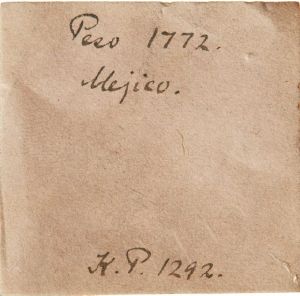 Peso 1772.
Mejico.
K.P. 1292.